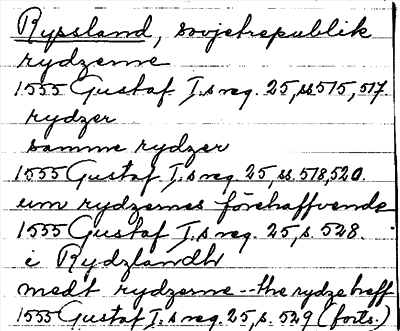 Ryssland, sovjetrepublik
rydzerne
1555 Gustaf I.s reg. 25, ss 515, 517.
rydzer
samme rydzer
1555 Gustaf I.s reg. 25, ss. 518, 520.
um rydzernes förehaffvende
1555 Gustaf I.s reg. 25, s. 528.
i Rydzlandh
medt rydzerne -- the rydze haff
1555 Gustaf I.s reg. 25, s. 529 (forts.)